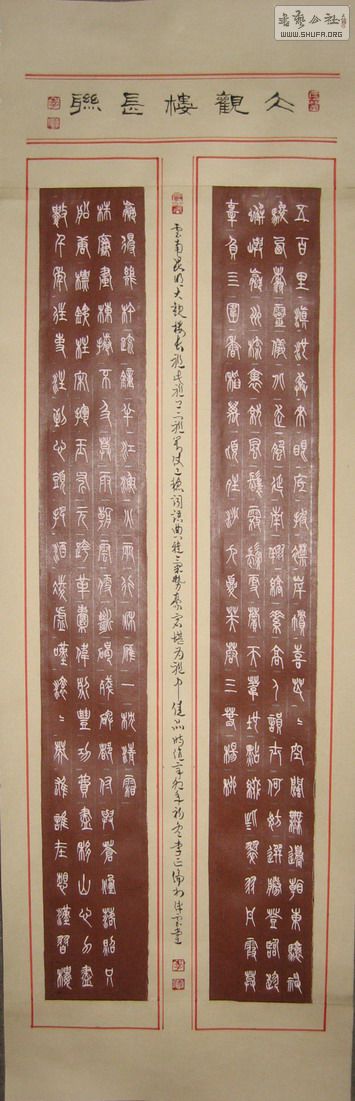 書藝公社
WWW.SHUFA.ORG
大觀樓長聯
五百里滇池奔來眼底披襟岸幘喜茫〻空闊無邊看東驤神
駿西翥靈儀北走蜿蜒南翔縞素高人韻士何妨選勝登臨趁
蟹嶼螺洲梳裹就風鬟霧鬢更蘋天葦地點綴些翠羽丹霞莫
辜負三圍香稻萬頃晴沙九夏芙蓉三春楊柳
雲南昆明大觀樓長聯此聯詞語典雅氣勢豪宕堪為聯中佳品時值年初冬李正
數千年往事注到心頭把酒凌虛嘆滾〻英雄誰在想漢習樓
船唐標鐵柱宋揮玉斧元跨革囊偉烈豐功費盡移山心力盡
珠簾畫棟捲不及暮雨朝雲便斷碣殘碑都付與蒼煙落照只
贏得幾杵疏鐘半江漁火兩行秋雁一枕清霜